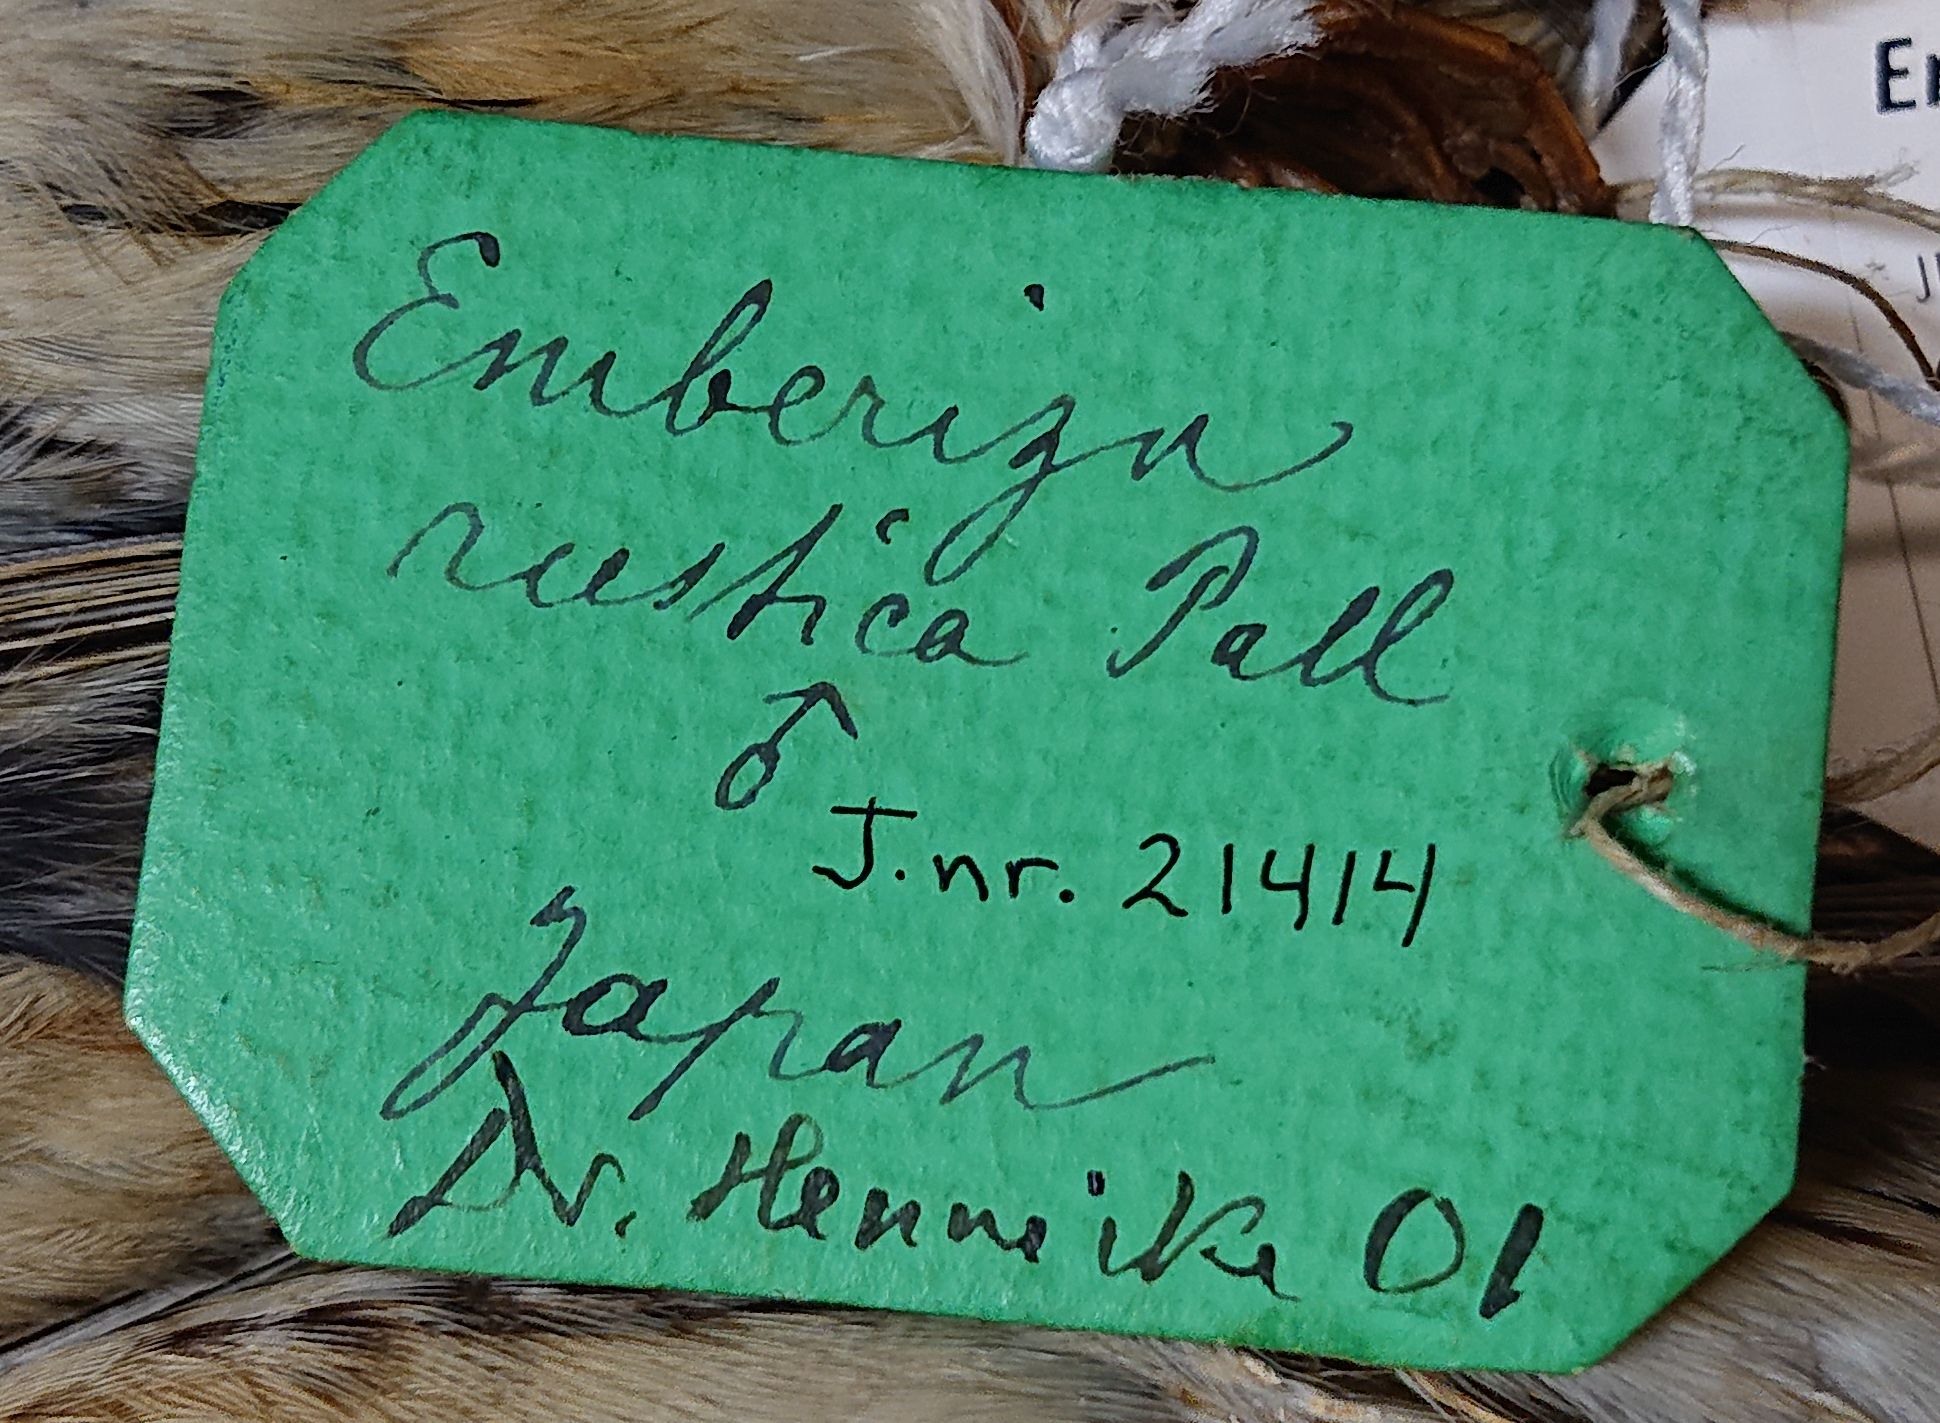 Emberiza
rustica Pall
♂
J.nr. 21414
Japan
Dr. Hennicke 01